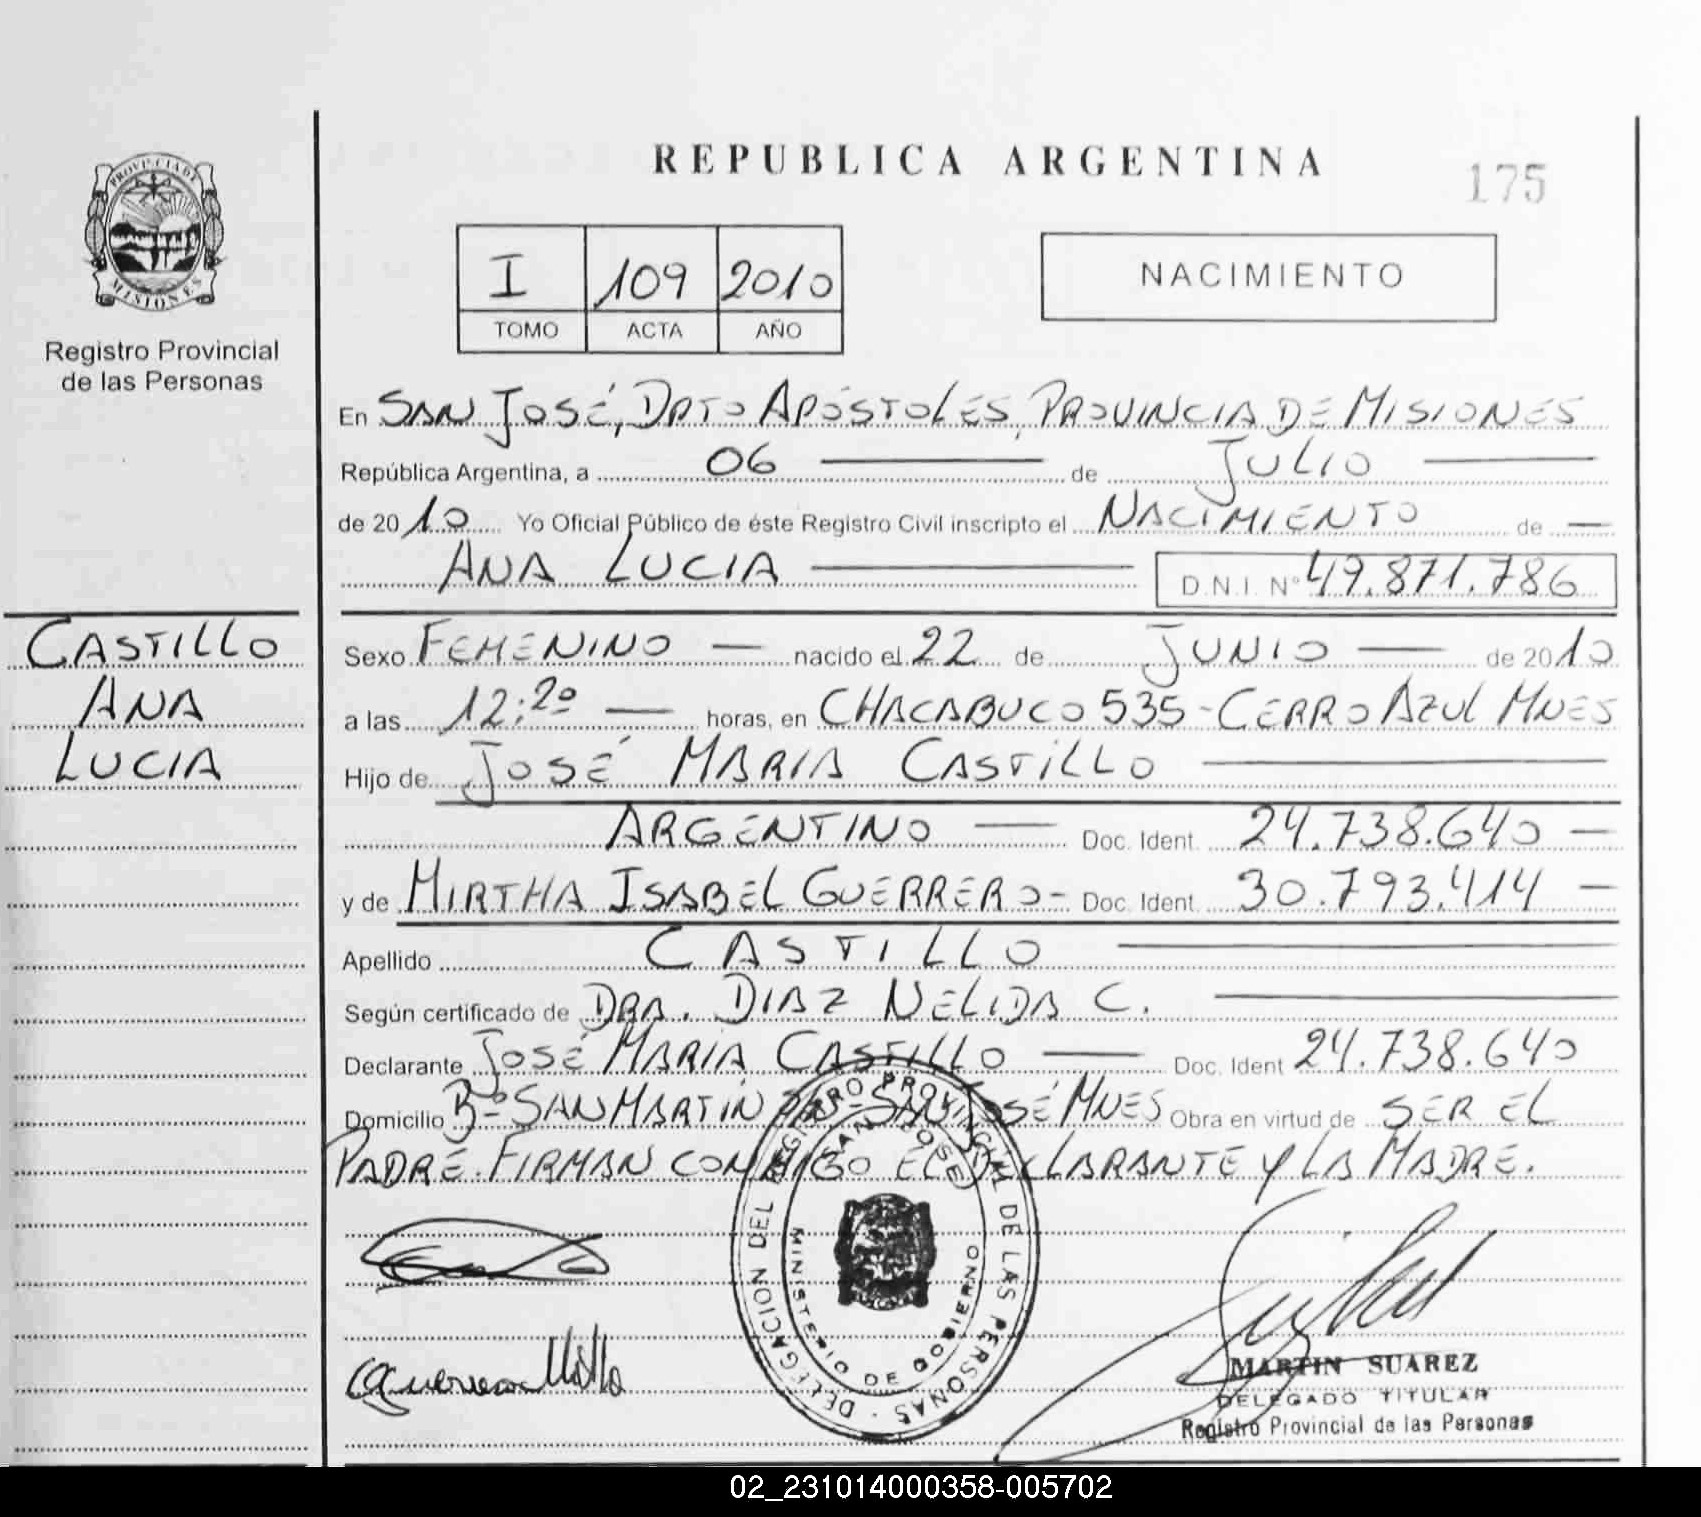 REPUBLICA ARGENTINA
175
PROVINCIA DE
MISIONES
Registro Provincial
de las Personas
I 109 2010
TOMO ACTA AÑO
NACIMIENTO
En SAN JOSÉ, DPTO APÓSTOLES, PROVINCIA DE MISIONES
República Argentina, a 06 de JULIO
de 2010 Yo Oficial Público de éste Registro Civil inscripto el NACIMIENTO de
ANA LUCIA D.N.I. Nº 49.871.786
CASTILLO
ANA
LUCIA
Sexo FEMENINO nacido el 22 de JUNIO de 2010
a las 12:20 horas, en CHACABUCO 535 - CERRO AZUL MNES
Hijo de JOSÉ MARIA CASTILLO
ARGENTINO Doc. Ident. 24.738.640
y de MIRTHA ISABEL GUERRERO - Doc. Ident. 30.793.414
Apellido CASTILLO
Según certificado de DRA. DIAZ NELIDA C.
Declarante JOSÉ MARIA CASTILLO Doc. Ident 24.738.640
Domicilio Bº SAN MARTIN - SAN JOSÉ MNES Obra en virtud de SER EL
PADRE. FIRMAN CONMIGO EL DECLARANTE Y LA MADRE.
DELEGACION DEL REGISTRO PROVINCIAL DE LAS PERSONAS
SAN JOSE
MINISTERIO DE GOBIERNO
MARTIN SUAREZ
DELEGADO TITULAR
Registro Provincial de las Personas
02_231014000358-005702